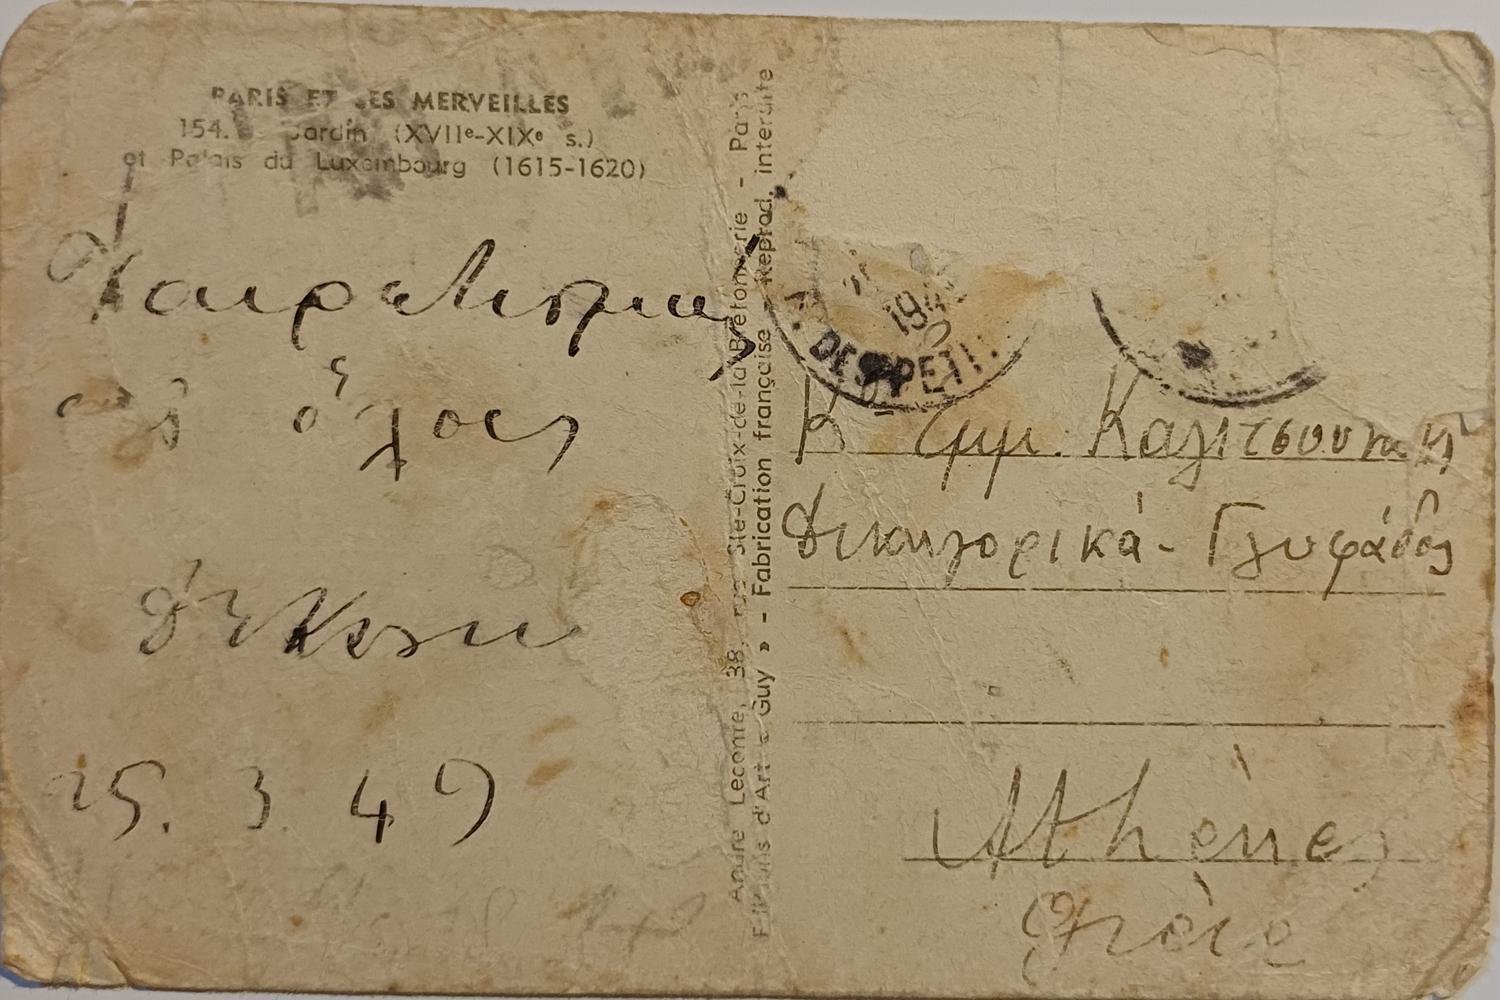 PARIS ET SES MERVEILLES
154. Jardin (XVIIe-XIXe s.)
et Palais du Luxembourg (1615-1620)
Χαιρετισμούς
σε όλους
25. 3. 49
André Leconte, 38, rue Ste-Croix-de-la-Bretonnerie - Paris
Editions d'Art « Guy » - Fabrication française - Reprod. interdite
194
DES PETI
Κον Εμμ. Καλιτσουνάκη
Δικηγορικά - Γλυφάδος
Athènes
Grèce